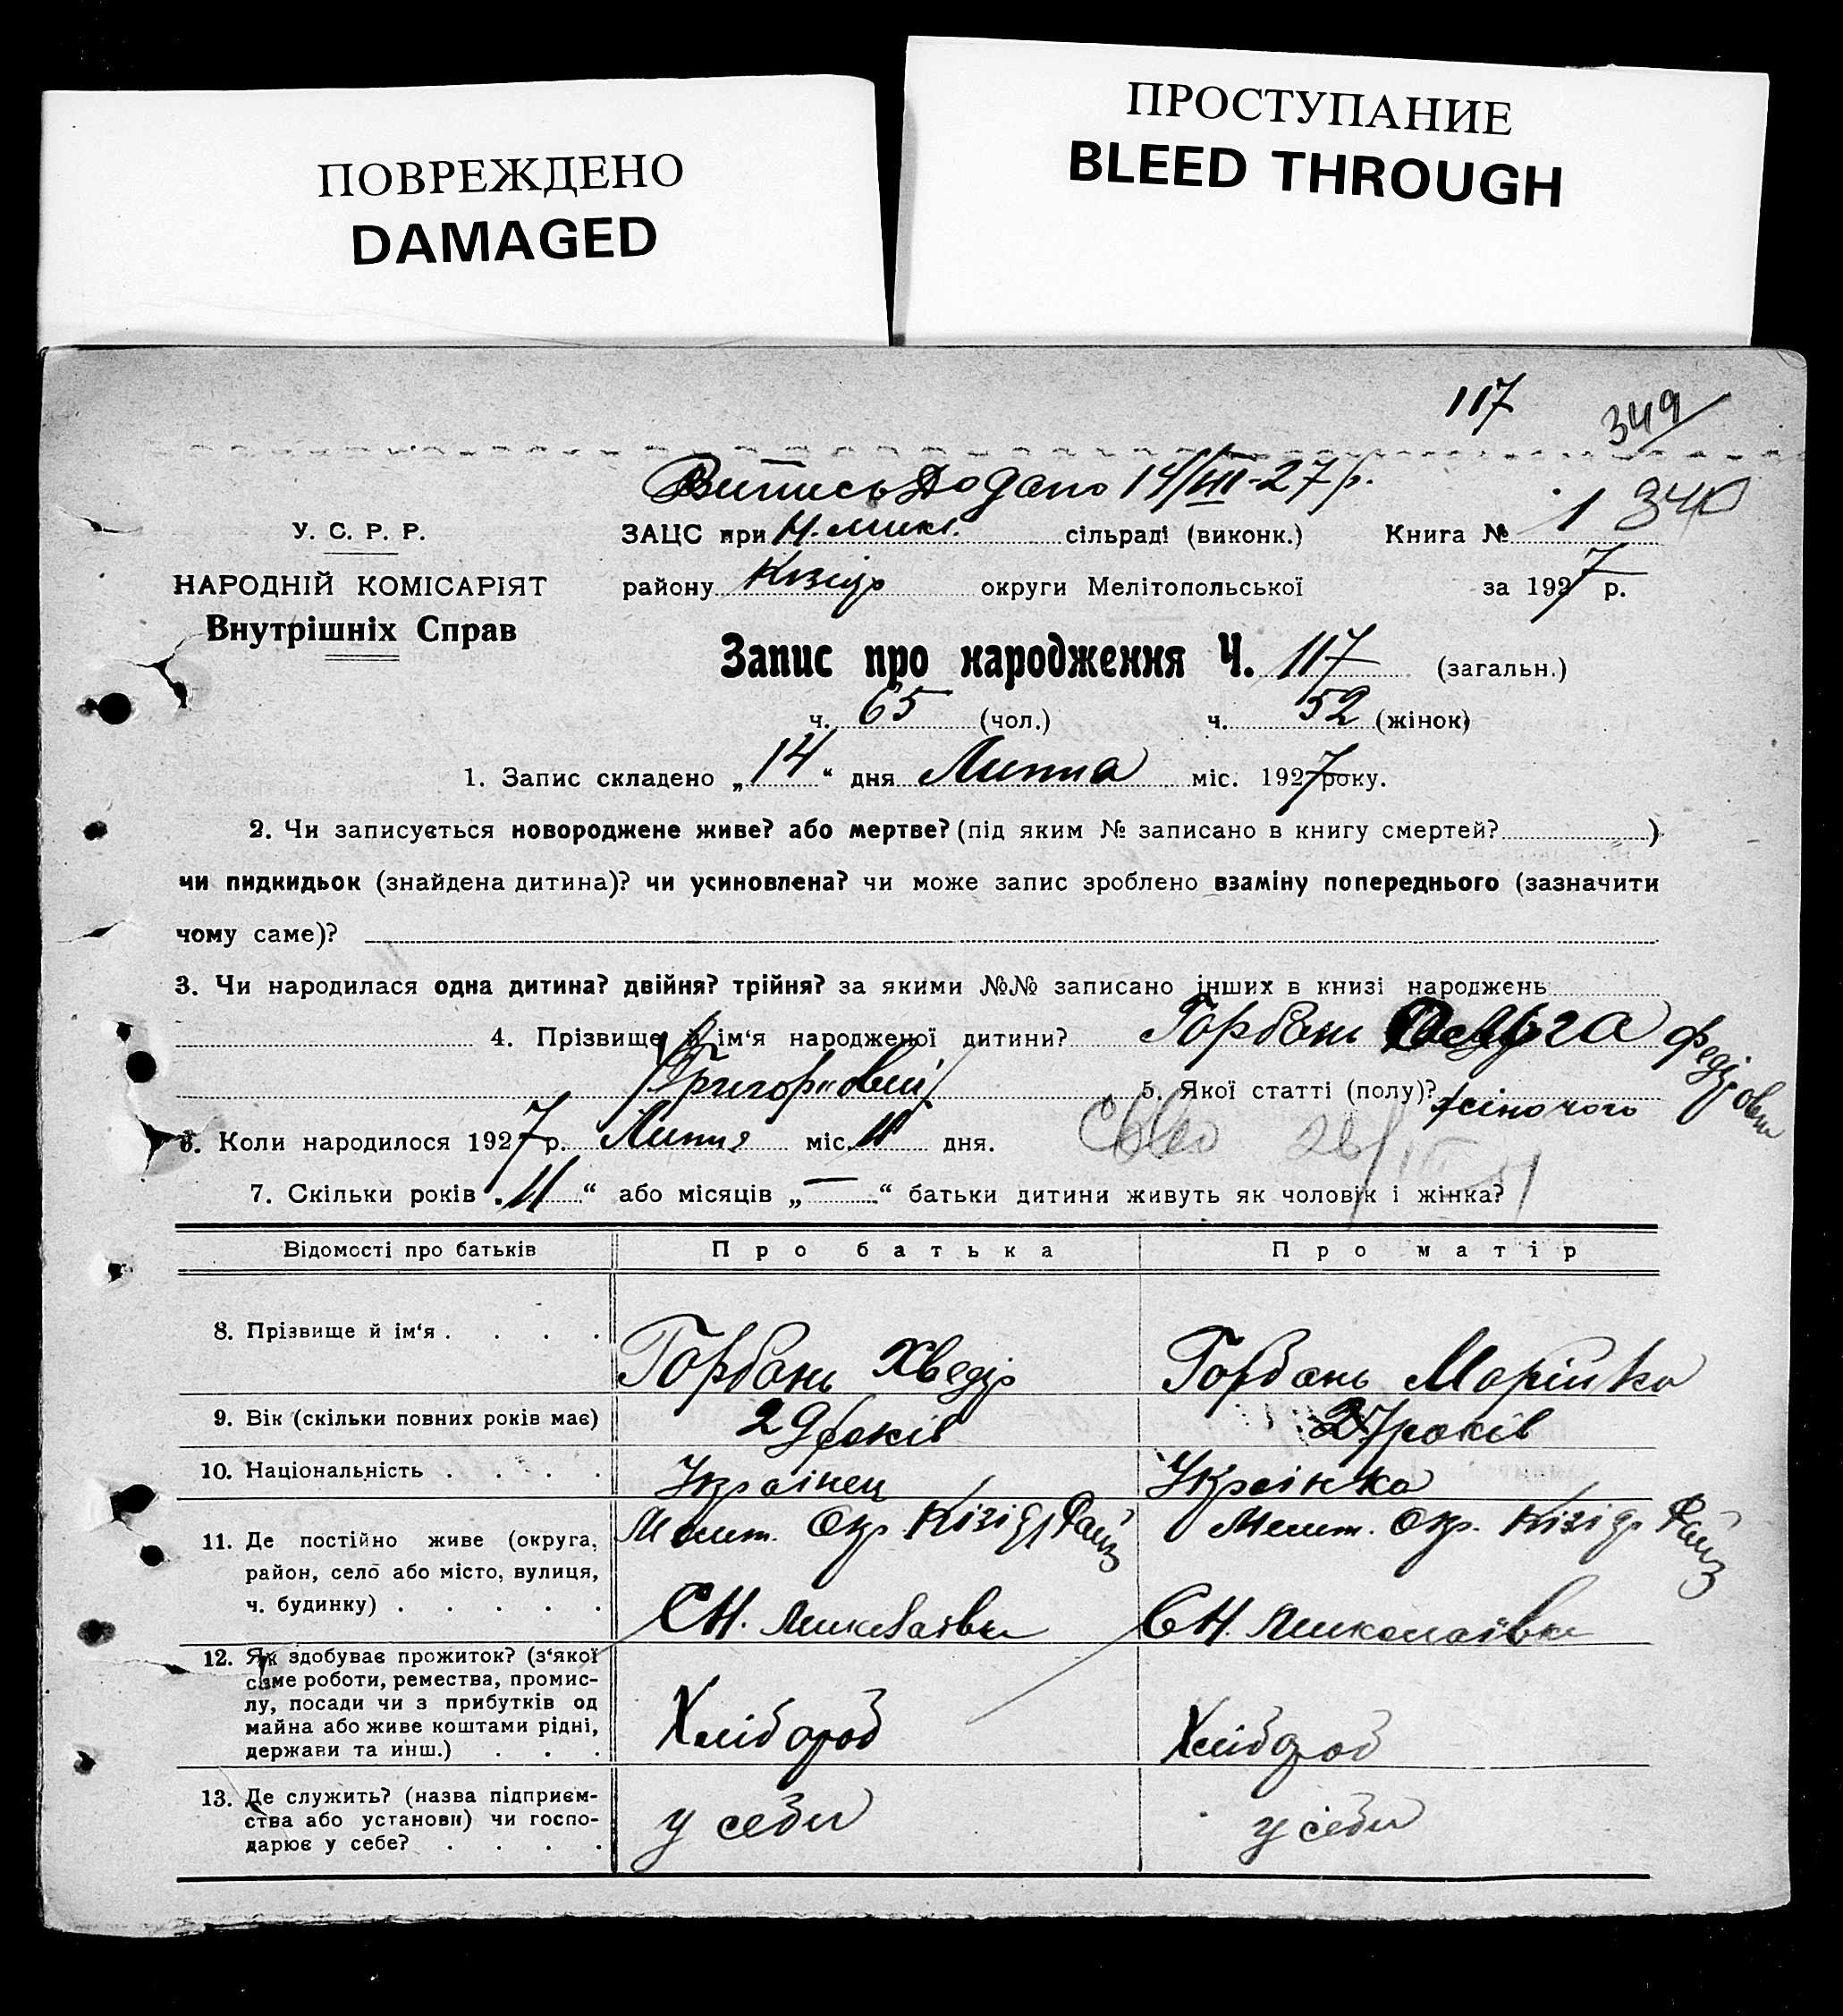 ПОВРЕЖДЕНО
DAMAGED
ПРОСТУПАНИЕ
BLEED THROUGH
117
349
Витпись Додано 14/VII-27 р.
340
У. С. Р. Р.
НАРОДНІЙ КОМІСАРІЯТ
Внутрішніх Справ
ЗАЦС при Н. Микл. сільраді (виконк.) Книга № 1
району округи Мелітопольської за 1927 р.
Запис про народження Ч. 117 (загальн.)
ч. 65 (чол.) ч. 52 (жінок)
1. Запис складено „14“ дня Липня міс. 1927 року.
2. Чи записується новороджене живе? або мертве? (під яким № записано в книгу смертей? )
чи пидкидьок (знайдена дитина)? чи усиновлена? чи може запис зроблено взаміну попереднього (зазначити
чому саме)?
3. Чи народилася одна дитина? двійня? трійня? за якими №№ записано інших в книзі народжень
4. Прізвище й ім‘я народженої дитини? Горбань Федіровна
5. Якої статті (полу)? жіночого
6. Коли народилося 1927 р. Липня міс. 11 дня.
7. Скільки років „11“ або місяців „—“ батьки дитини живуть як чоловік і жінка?
Відомості про батьків Про батька Про матір
8. Прізвище й ім‘я . . . . Горбань Хведір Горбань Марійка
9. Вік (скільки повних років має) 29 років 27 років
10. Національність . . . . Українец Українка
11. Де постійно живе (округа, Мелит. Окр. Кізідр Райз Мелит. Окр. Кізідр Райз
район, село або місто, вулиця,
ч. будинку) . . . . . С Н. Миколаівка С Н. Миколаівка
12. Як здобуває прожиток? (з‘якої
саме роботи, ремества, промис-
лу, посади чи з прибутків од
майна або живе коштами рідні,
держави та инш.) . . . Хлібороб Хлібороб
13. Де служить? (назва підприєм-
ства або установи) чи госпо-
дарює у себе? . . . . у себи у себи